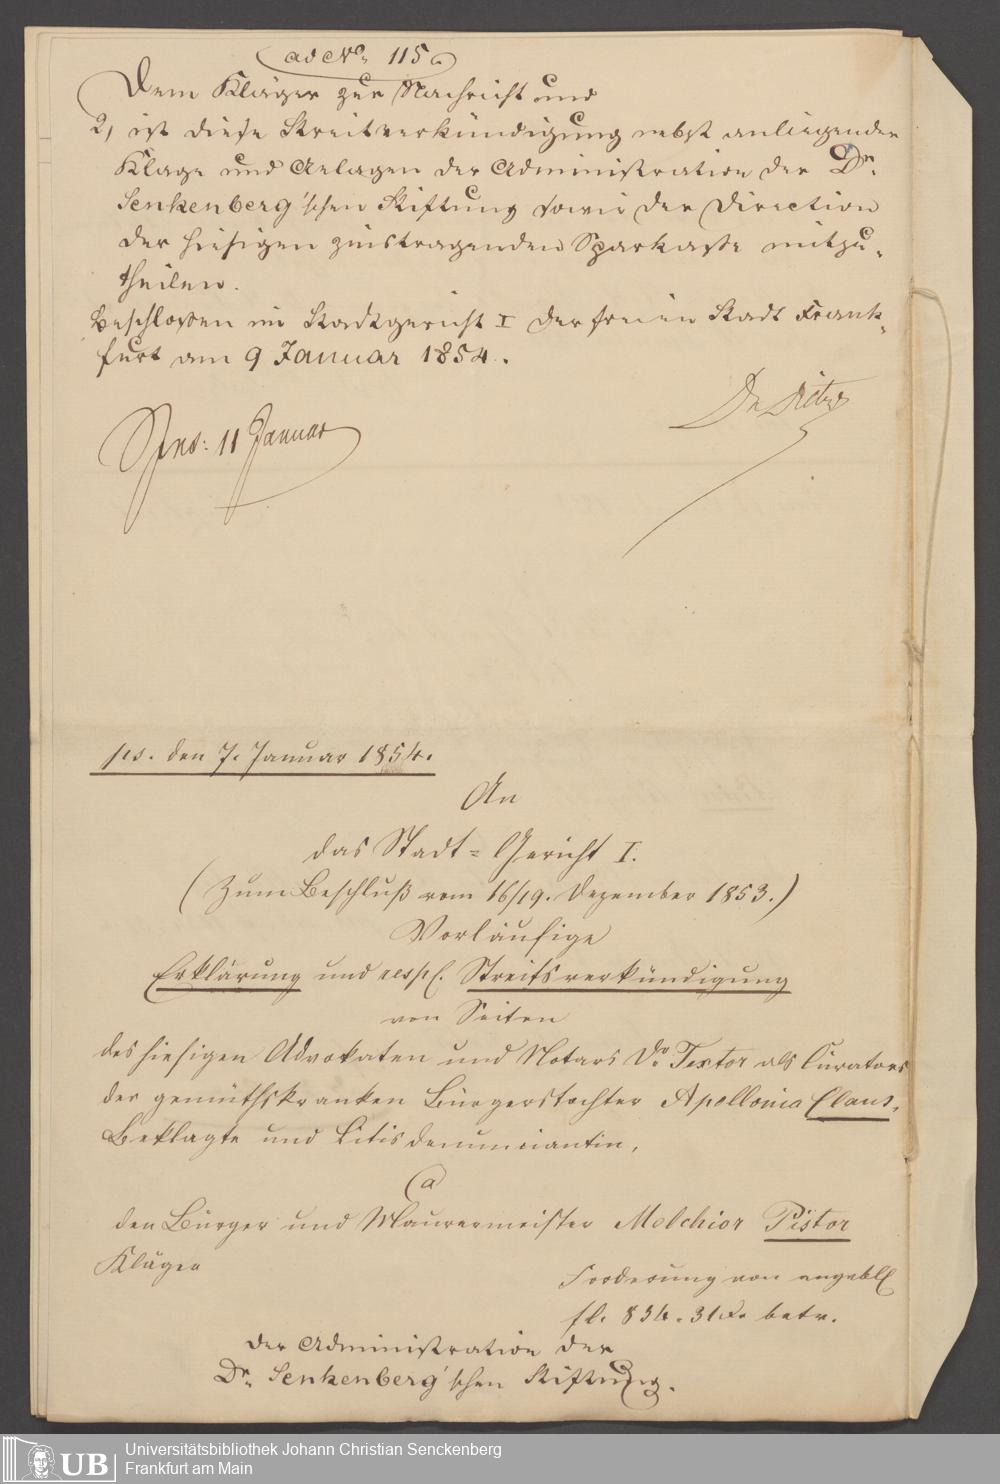 ad No. 115
Dem Kläger zur Nachricht und
2, ist diese Streitverkündigung nebst anliegender
Klage und Anlagen der Administration der Dr.
Senkenberg'schen Stiftung sowie der Direction
der hiesigen zinstragenden Sparkasse mitzu-
theilen.
Beschlossen im Stadtgericht I der freien Stadt Frank-
furt am 9 Januar 1854.
11 Januar
ps. den 7. Januar 1854.
An
das Stadt-Gericht I.
(Zum Beschluß vom 16/19. Dezember 1853.)
Vorläufige
Erklärung und resp. Streitsverkündigung
von Seiten
des hiesigen Advokaten und Notars Dr. Textor als Curators
der gemüthskranken Bürgerstochter Apollonia Claus,
Beklagte und Litisdenunciantin,
a
den Bürger und Maurermeister Melchior Pistor
Kläger
Forderung von angebl.
fl. 834. 31 betr.
Der Administration der
Dr. Senkenberg'schen Stiftung.
UB
Universitätsbibliothek Johann Christian Senckenberg
Frankfurt am Main